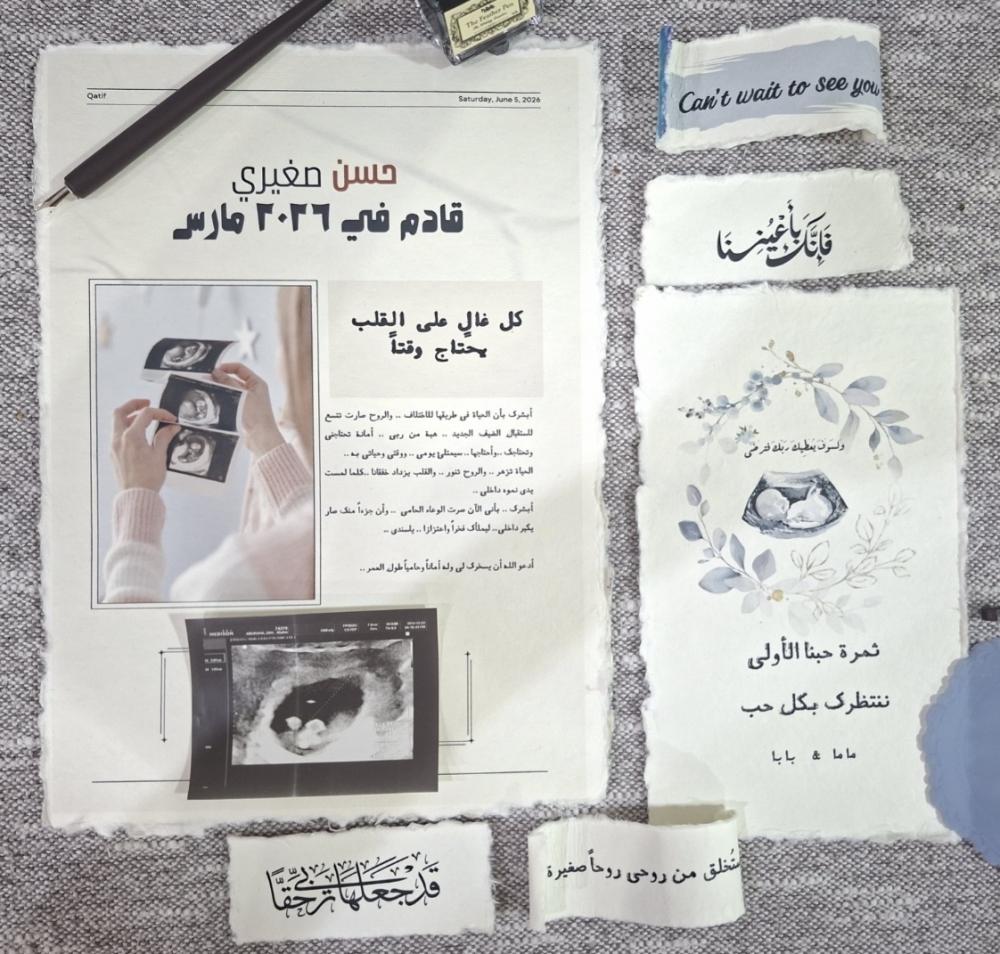 The Feather Pen
Qatif
Saturday, June 5, 2026
حسن صغيري
قادم في ٢٠٢٦ مارس
كل غالٍ على القلب
يحتاج وقتاً
أبشرك بأن الحياة في طريقها للاختلاف .. والروح صارت تتسع
للستقبال الضيف الجديد .. هبة من ربي .. أمانة تحتاجني
وتحتاجك ..وأحتاجها .. سيمتلئ يومي .. ووقتي وحياتي به ..
الحياة تزهر .. والروح تنور .. والقلب يزداد خفقانا ..كلما لمست
يدي نموه داخلي ..
أبشرك .. بأني الآن صرت الوعاء الحامي .. وأن جزءاً منك صار
يكبر داخلي.. ليملأك فخراً واعتزازا .. ياسندي ..
أدعو الله أن يسخرك لي وله أماناً وحامياً طول العمر ..
Can't wait to see you
فَإِنَّكَ بِأَعْيُنِنَا
ولسوف يعطيك ربك فترضى
ثمرة حبنا الأولى
ننتظرك بكل حب
ماما & بابا
قَدْ جَعَلَهَا رَبِّي حَقًّا
ستُخلق من روحي روحاً صغيرة